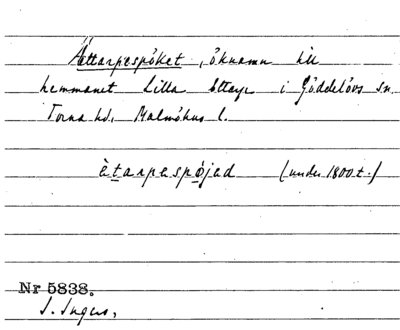 Ättarpespöket, öknamn till
hemmanet Lilla Ättarp i Göddelövs sn.
Torna hd, Malmöhus l.
ètarpespøjad (under 1800 t.)
Nr 5838.